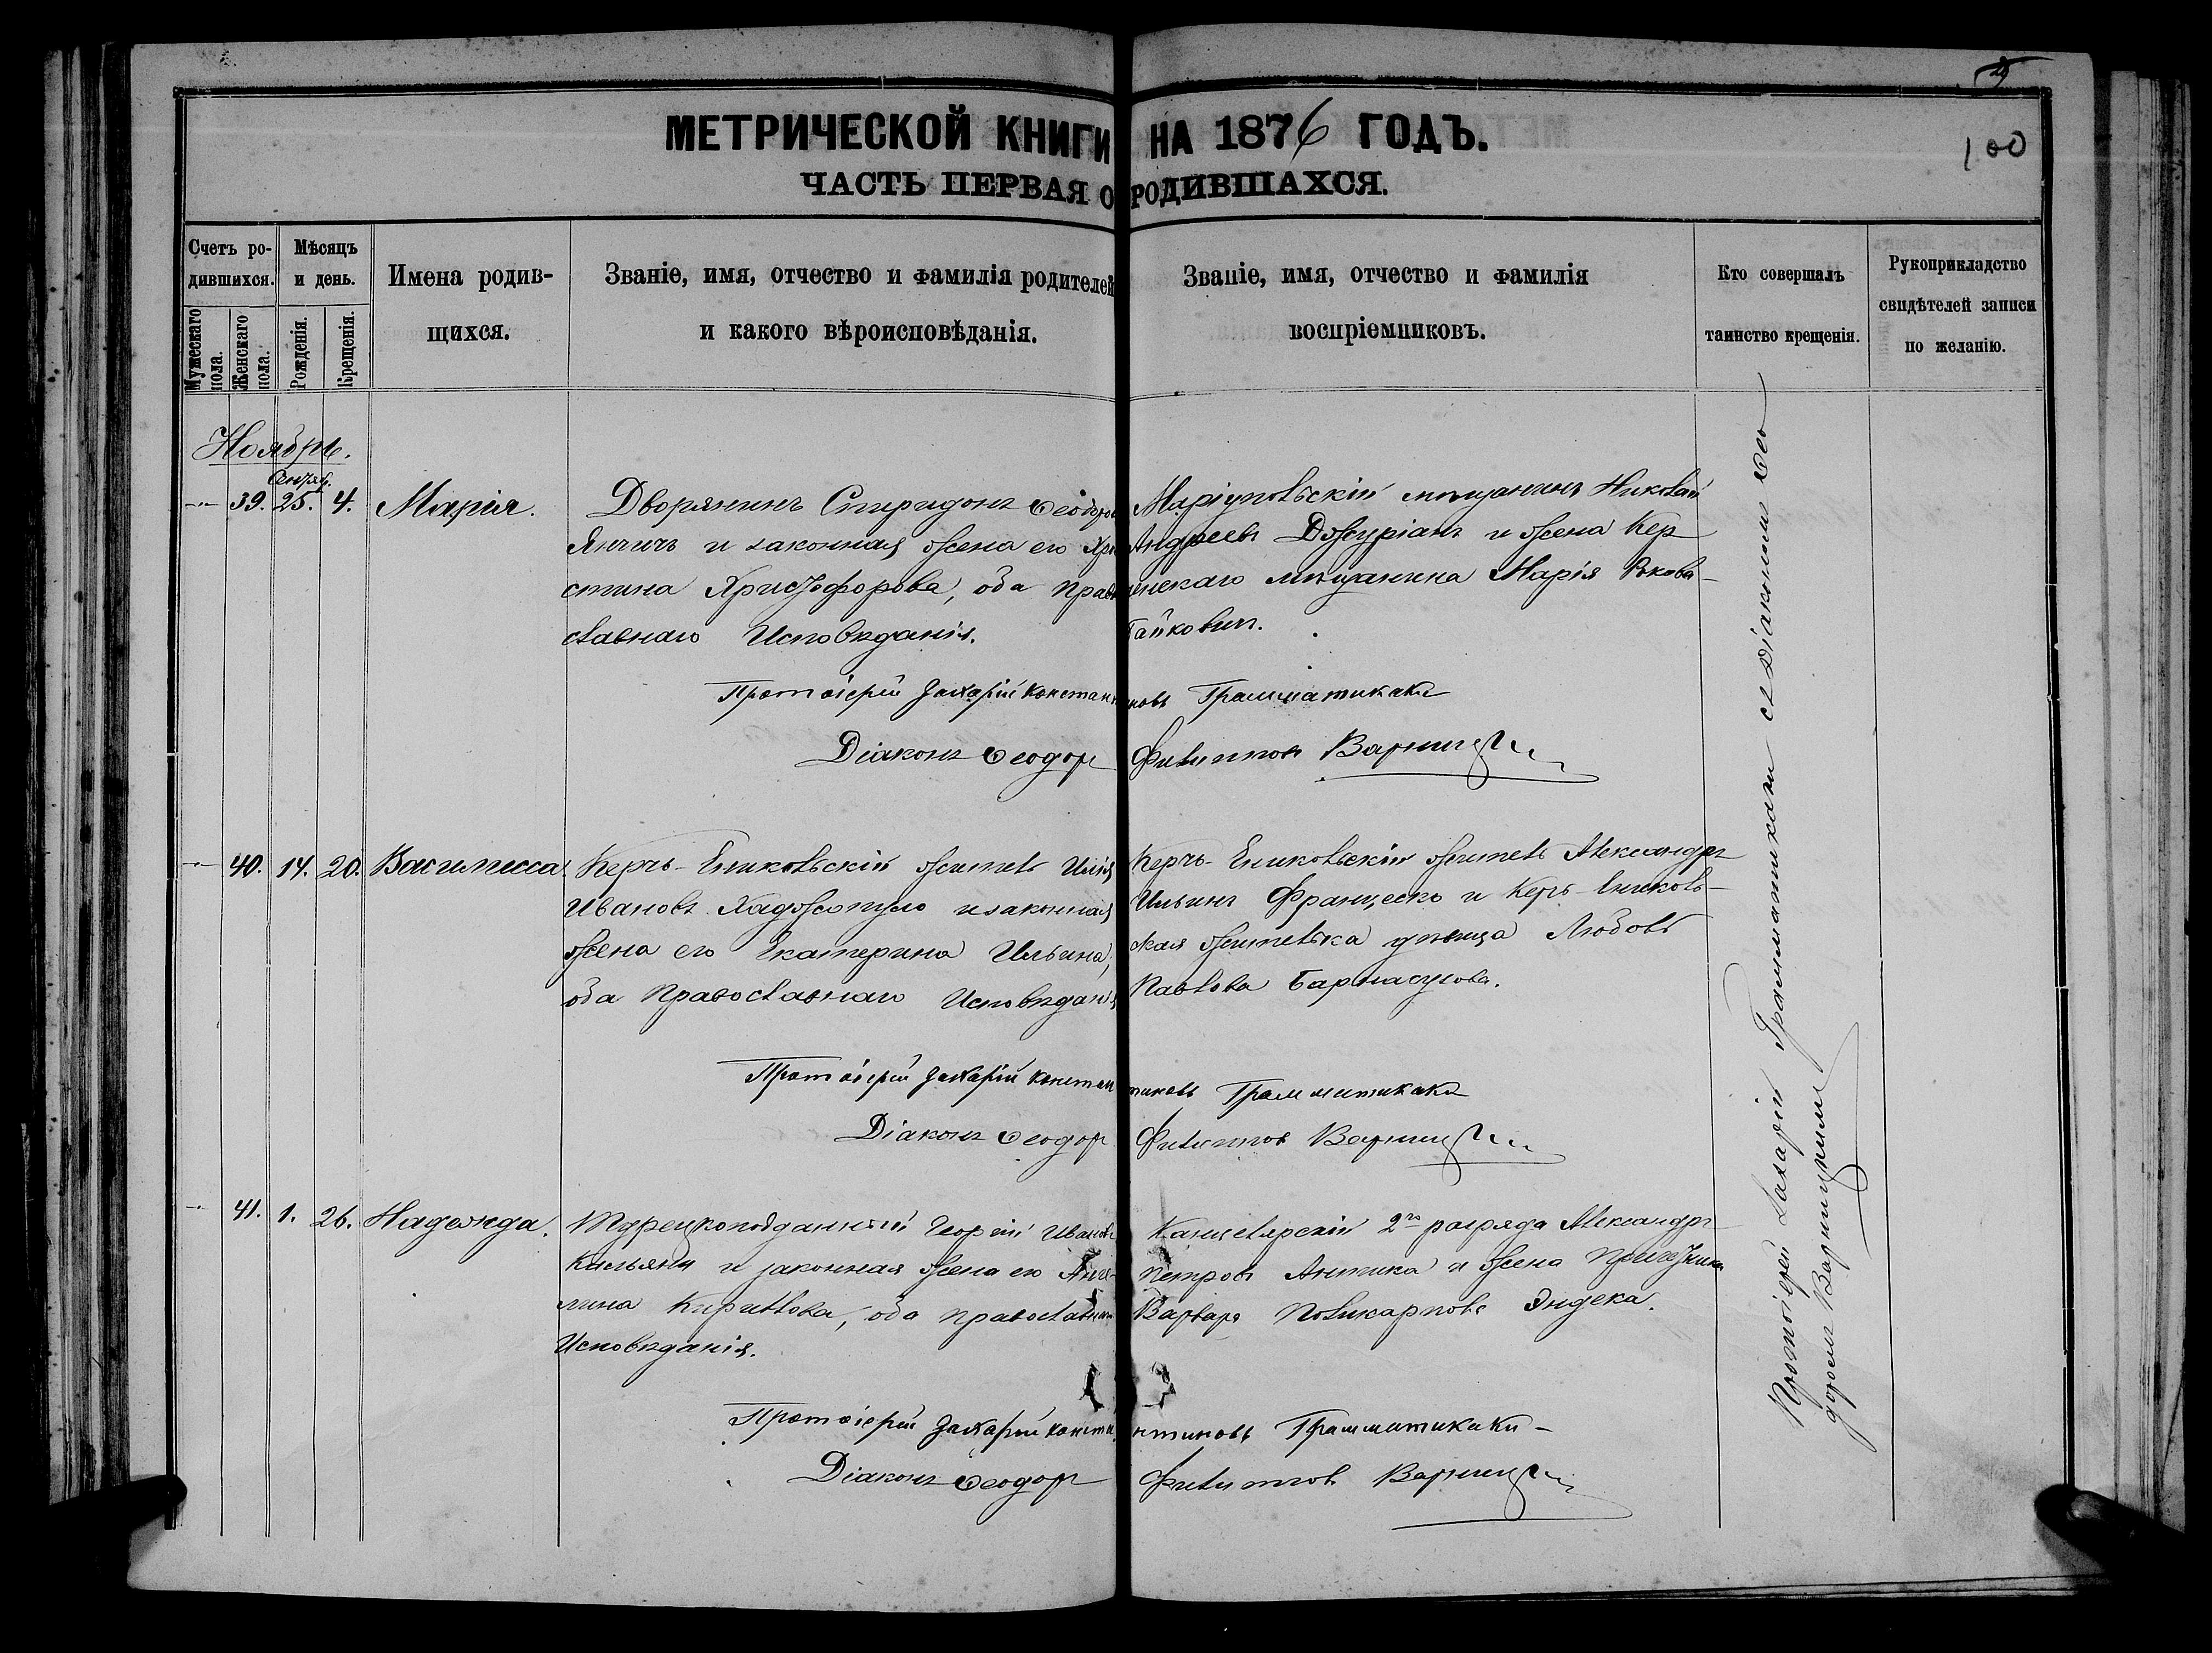 МЕТРИЧЕСКОЙ КНИГИ НА 1876 ГОДЪ.
100
ЧАСТЬ ПЕРВАЯ О РОДИВШАХСЯ.
Счетъ ро-
дившихся.
Мужескаго пола.
Женскаго пола.
Мѣсяцъ
и день.
Рожденія.
Крещенія.
Имена родив-
щихся.
Званіе, имя, отчество и фамилія родителей
и какого вѣроисповѣданія.
Званіе, имя, отчество и фамилія
воспріемниковъ.
Кто совершалъ
таинство крещенія.
Рукоприкладство
свидѣтелей записи
по желанію.
Ноябрь.
39. 25. 4. Марія.
Дворянинъ Спиридонъ Ѳеодоров
Янчичъ и законная жена его Хри
стина Христофорова, оба право
славнаго Исповѣданія.
Маріупольскій мѣщанинъ Николай
Андреевъ Джуріанъ и жена Кер
ченскаго мѣщанина Марія
Гайковичъ.
Протоіерей Захарій Константиновъ Грамматикаки
Діаконъ Ѳеодоръ Филипповъ Варницкій
40. 14. 20. Василисса
Керчь-Ениколськiй житель Илія
Ивановъ Хаджопуло и законная
жена его Екатерина Ильина,
оба Православнаго Исповѣданія
Керчь-Еникольскій житель Александръ
Ильинъ Франческо и Керчь-Ениколь-
ская жителька дѣвица Любовь
Павлова
Протоіерей Захарій Константиновъ Грамматикаки
Діаконъ Ѳеодоръ Филипповъ Варницкій
41. 1. 26. Надежда.
Турецкоподданный Георгій Ивановъ
Кальяни и законная жена его Анге-
лина Кириллова, оба православнаго
Исповѣданія.
Канцелярскій 2го разряда Александръ
Петровъ Антика и жена
Варвара Поликарпова Эндека.
Протоіерей Захарій Константиновъ Грамматикаки -
Діаконъ Ѳеодоръ Филипповъ Варницкій
Протоіерей Захарій Грамматикаки съ діакономъ Ѳео
доромъ Варницкимъ